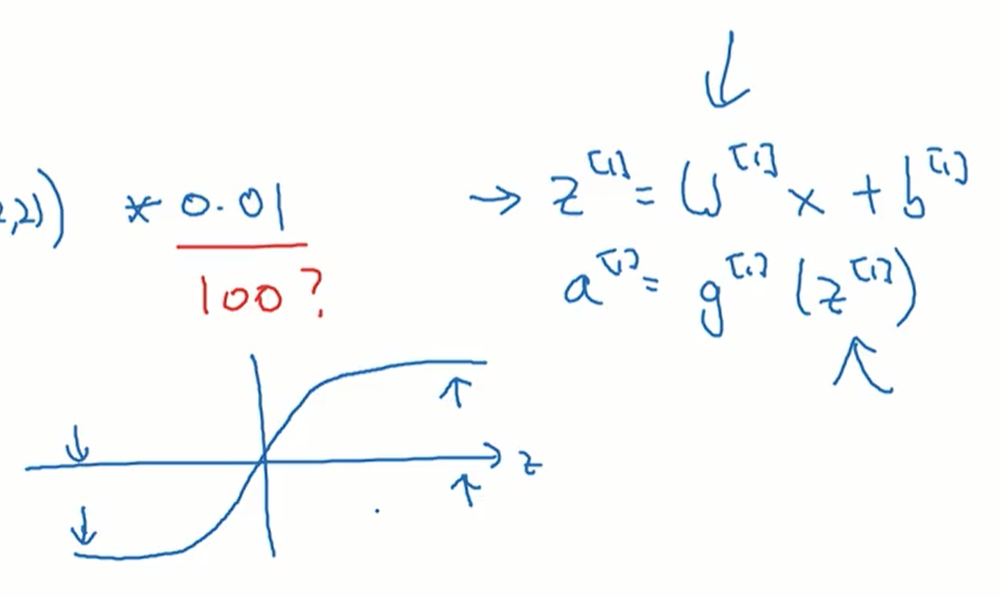 ,2)) * 0.01
100?
→ z^[1] = W^[1] x + b^[1]
a^[1] = g^[1] (z^[1])
z